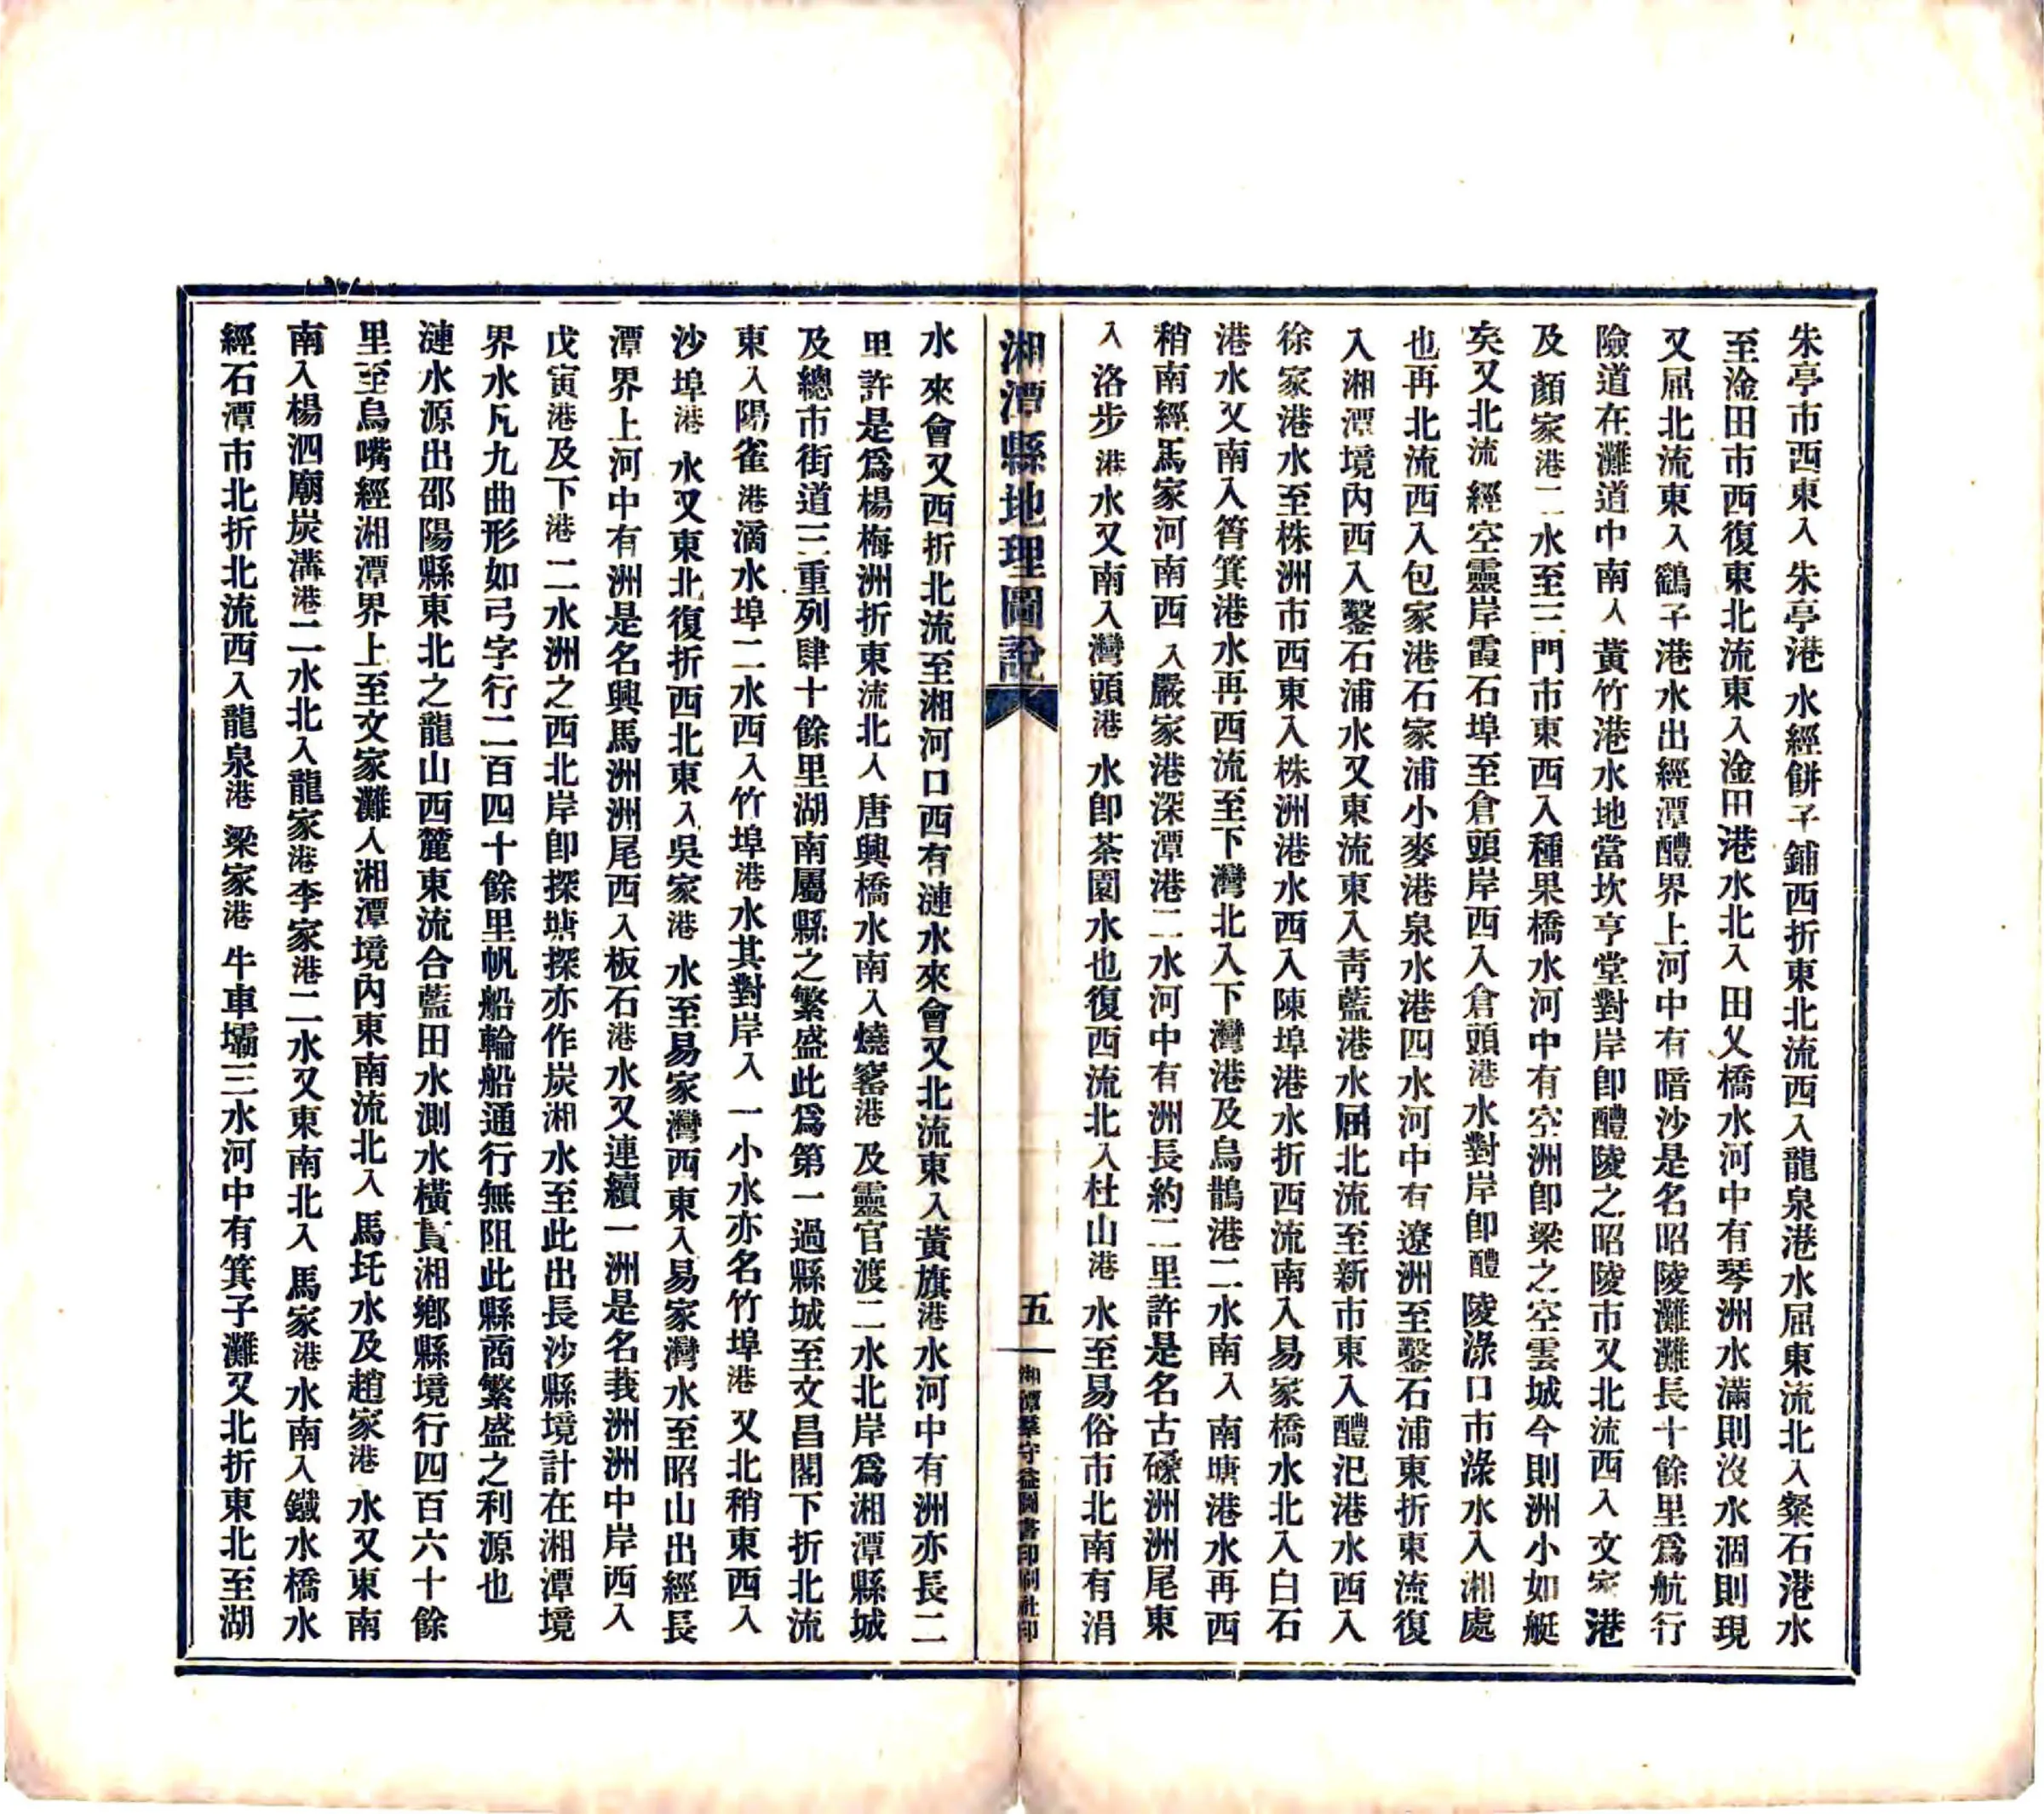 朱亭市西東入朱亭港水經餅子鋪西折東北流西入龍泉港水屈東流北入粲石港水
至淦田市西復東北流東入淦田港水北入田又橋水河中有琴洲水滿則沒水涸則現
又屈北流東入鶴子港水出經潭醴界上河中有暗沙是名昭陵灘灘長十餘里爲航行
險道在灘道中南入黃竹港水地當坎亨堂對岸卽醴陵之昭陵市又北流西入文家港
及顏家港二水至三門市東西入種果橋水河中有空洲卽梁之空雲城今則洲小如艇
矣又北流經空靈岸霞石埠至倉頭岸西入倉頭港水對岸卽醴陵淥口市淥水入湘處
也再北流西入包家港石家浦小麥港泉水港四水河中有遼洲至鑿石浦東折東流復
入湘潭境內西入鑿石浦水又東流東入靑藍港水屆北流至新市東入醴汜港水西入
徐家港水至株洲市西東入株洲港水西入陳埠港水折西流南入易家橋水北入白石
港水又南入筲箕港水再西流至下灣北入下灣港及烏鵲港二水南入南塘港水再西
稍南經馬家河南西入嚴家港深潭港二水河中有洲長約二里許是名古磉洲洲尾東
入洛步港水又南入灣頭港水卽茶園水也復西流北入杜山港水至易俗市北南有涓
湘潭縣地理圖說
五
湘潭羣守益圖書印刷社印
水來會又西折北流至湘河口西有漣水來會又北流東入黃旗港水河中有洲亦長二
里許是爲楊梅洲折東流北入唐興橋水南入燒窰港及靈官渡二水北岸爲湘潭縣城
及總市街道三重列肆十餘里湖南屬縣之繁盛此爲第一過縣城至文昌閣下折北流
東入陽雀港滴水埠二水西入竹埠港水其對岸入一小水亦名竹埠港又北稍東西入
沙埠港水又東北復折西北東入吳家港水至易家灣西東入易家灣水至昭山出經長
潭界上河中有洲是名興馬洲洲尾西入板石港水又連續一洲是名莪洲洲中岸西入
戊寅港及下港二水洲之西北岸卽探塘探亦作炭湘水至此出長沙縣境計在湘潭境
界水凡九曲形如弓字行二百四十餘里帆船輪船通行無阻此縣商繁盛之利源也
漣水源出邵陽縣東北之龍山西麓東流合藍田水測水橫貫湘鄉縣境行四百六十餘
里至烏嘴經湘潭界上至文家灘入湘潭境內東南流北入馬圫水及趙家港水又東南
南入楊泗廟炭溝港二水北入龍家港李家港二水又東南北入馬家港水南入鐵水橋水
經石潭市北折北流西入龍泉港梁家港牛車壩三水河中有箕子灘又北折東北至湖